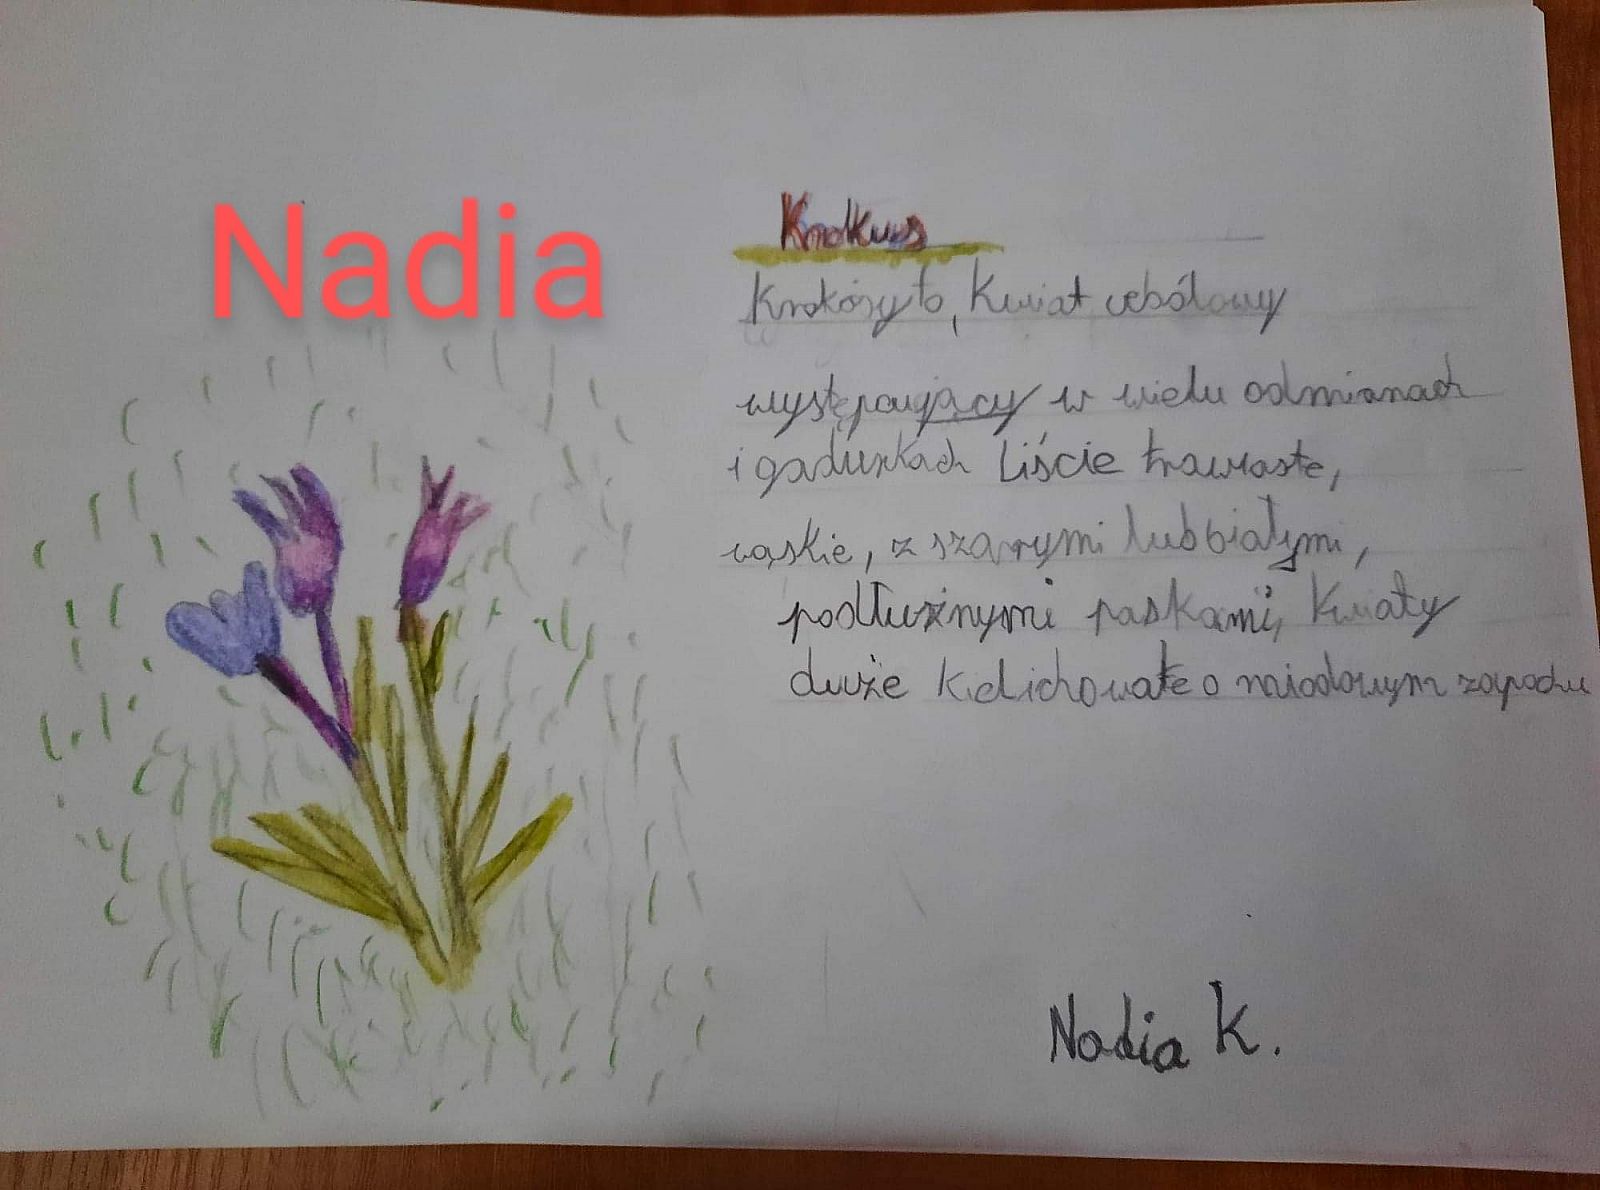 Nadia
Krokus
Krokósy to, Kwiat cebólowy
występujący w wielu odmianach
i gatunkach Liście trawiaste,
wąskie, z szarymi lub białymi,
podłużnymi paskami, Kwiaty
duże kielichowate o miodowym zapachu
Nadia K.